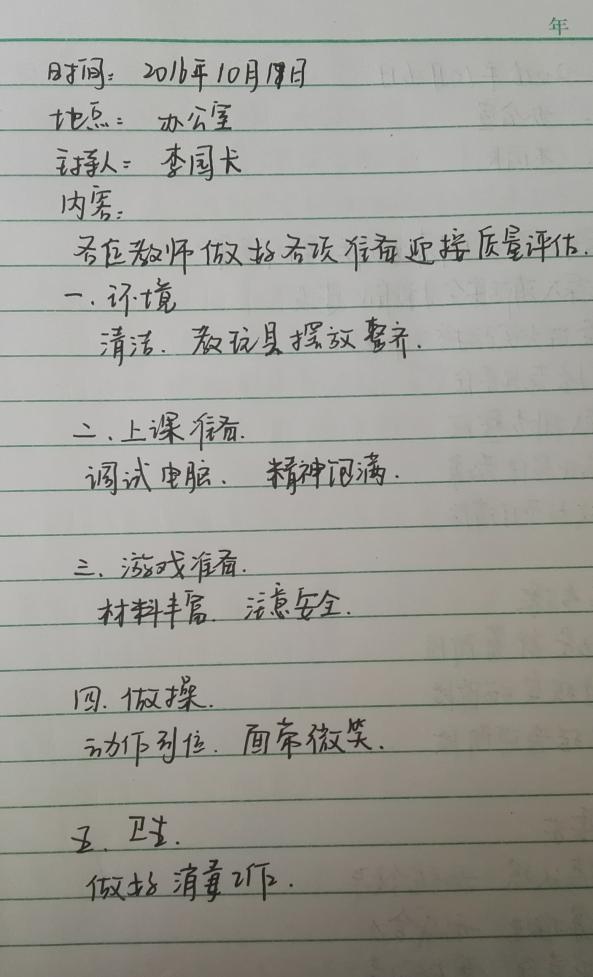 年
时间：2016年10月18日
地点：办公室
主持人：李国卡
内容：
各位教师做好各项准备迎接质量评估.
一.环境
清洁.教玩具摆放整齐.
二.上课准备.
调试电脑、精神饱满.
三.游戏准备.
材料丰富.注意安全.
四.做操.
动作到位.面带微笑.
五.卫生.
做好消毒工作.